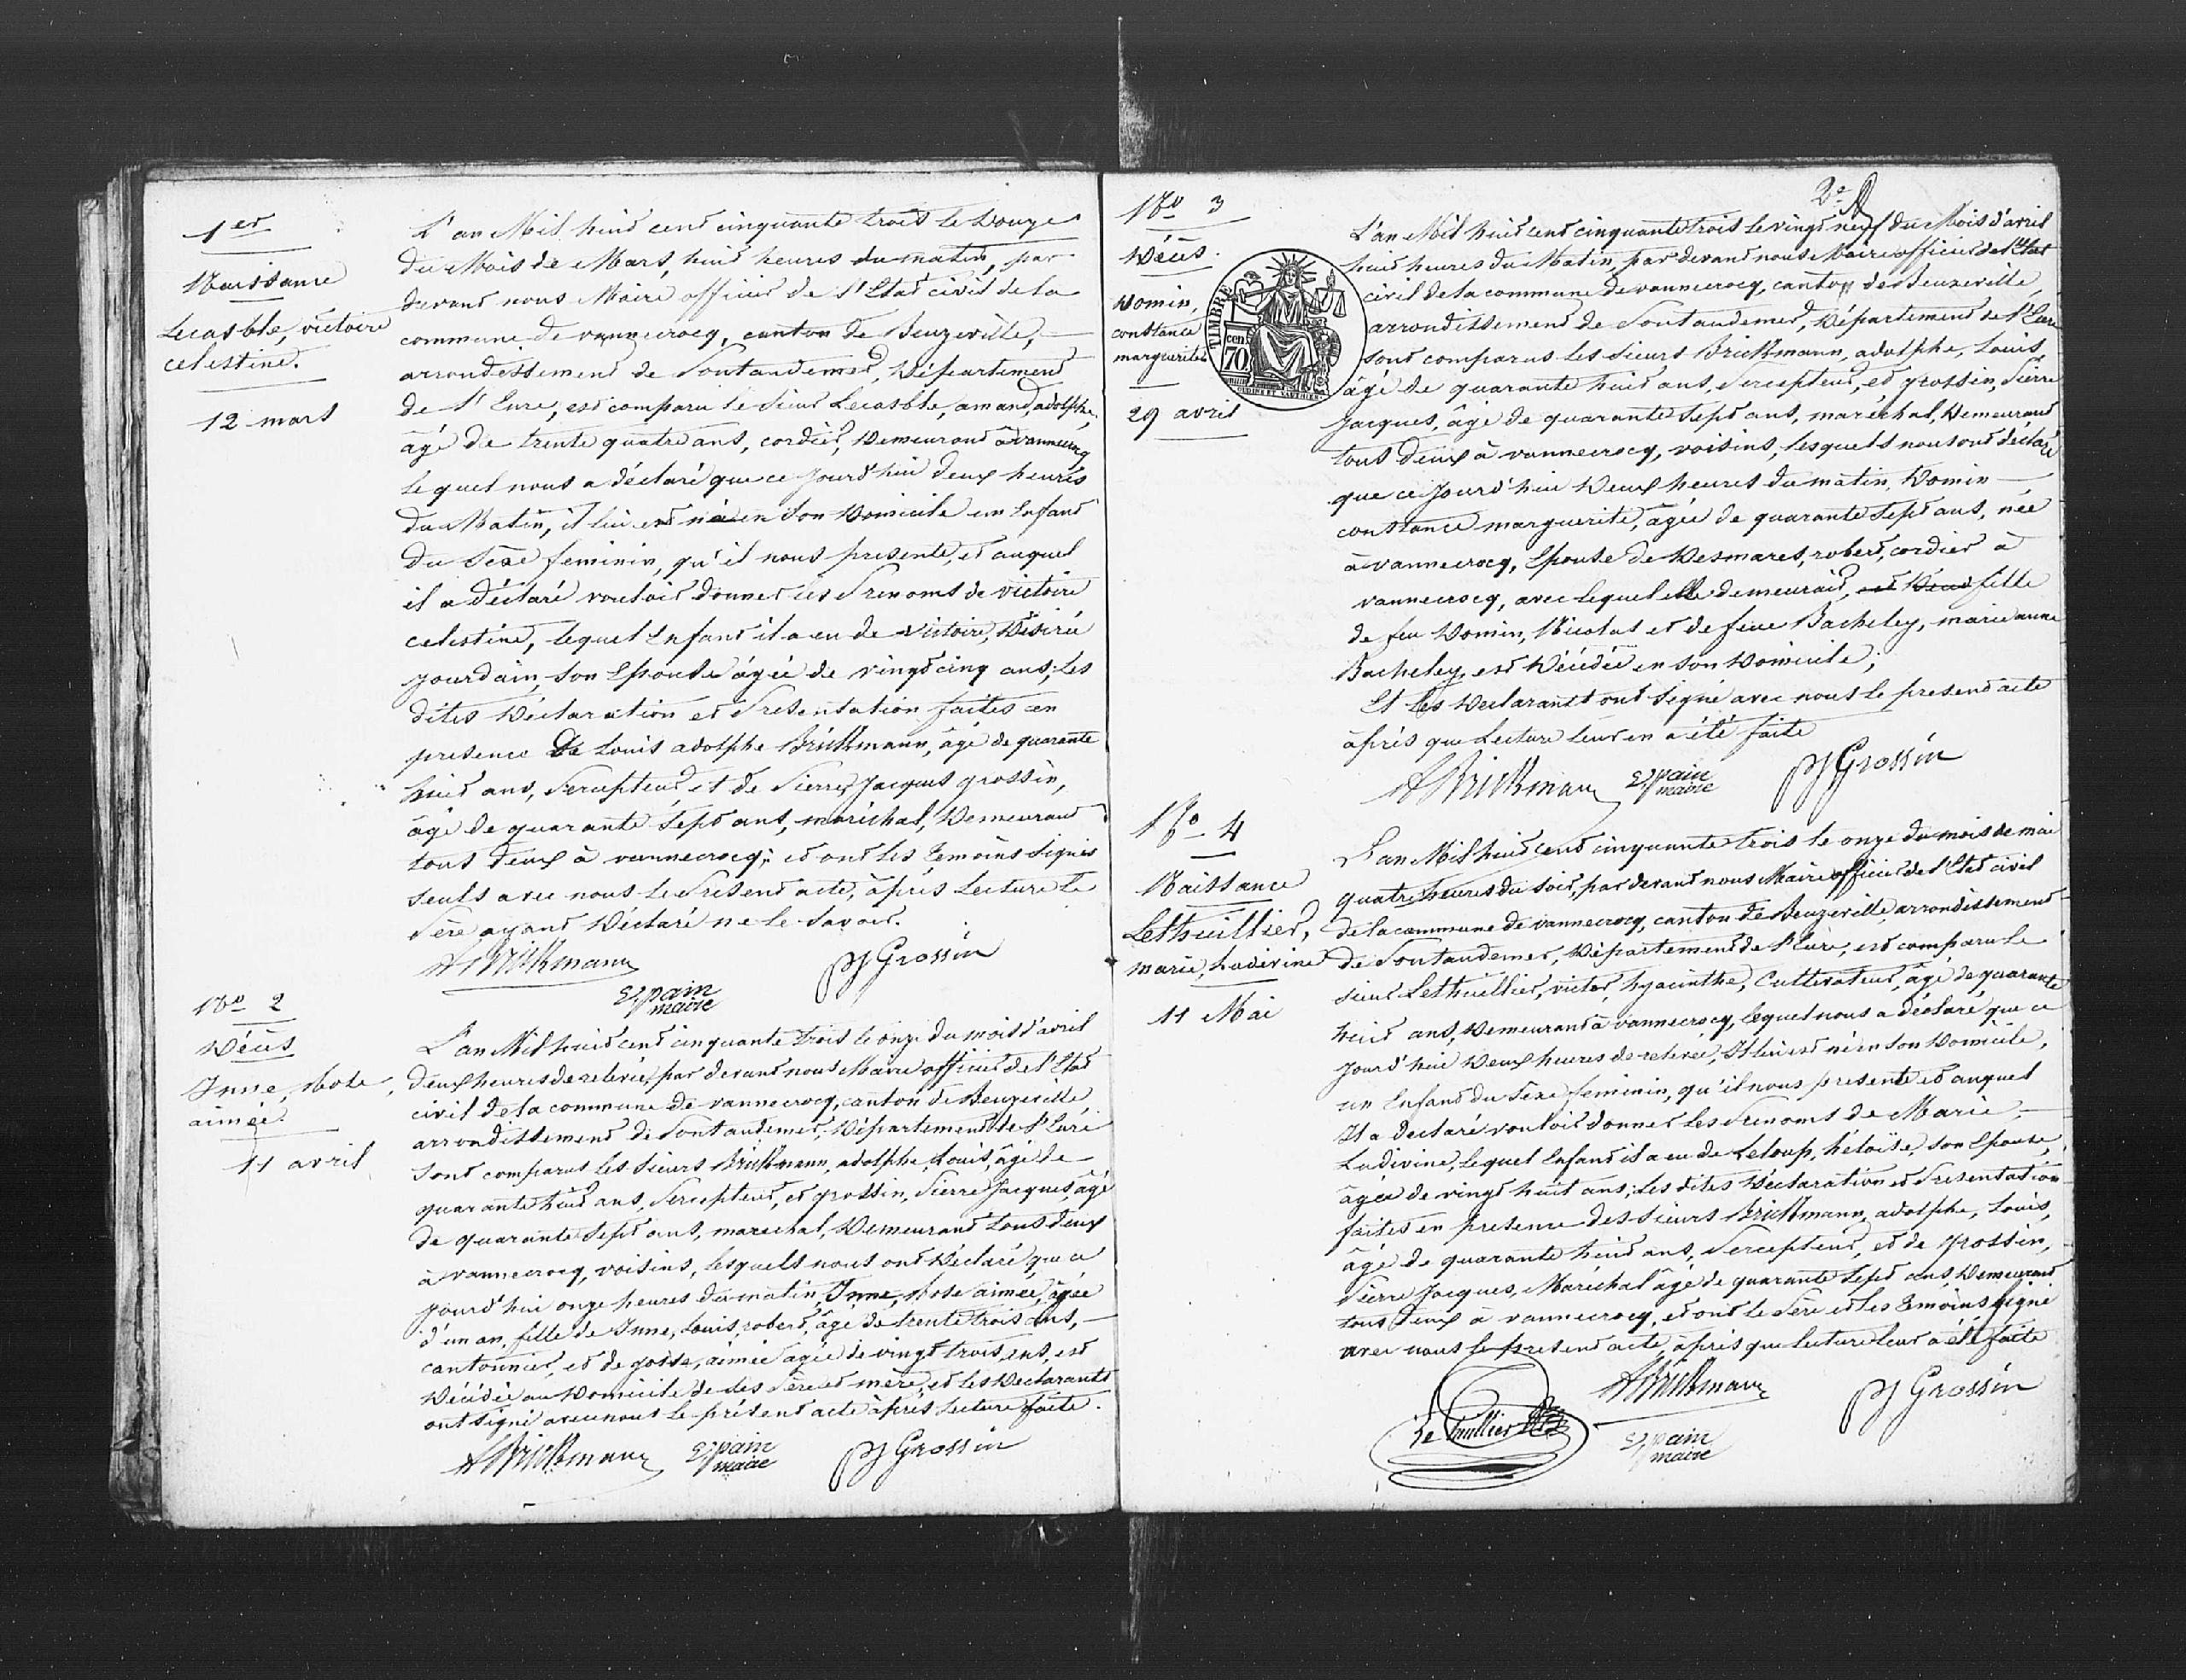 1er
Naissance
Lecasble, victoire
celestine.
12 mars
L'an Mil huit cent cinquante trois le Douze
du Mois de Mars, huit heures du matin, par
devant nous Maire officier de l'Etat civil de la
commune de vannecrocq, canton de Beuzeville,
arrondissement de Pontaudemer, Département
de l'Eure, est comparu le sieur Lecasble, amand, adolphe,
âgé de trente quatre ans, cordier, Demeurant à vannecrocq
lequel nous a déclaré que ce jourd'hui deux heures
du Matin, il lui est née en son Domicile un Enfant
du sèxe feminin, qu'il nous presente, et auquel
il a déclaré vouloir donner les Prenoms de victoire
celestine, lequel Enfant il a eu de victoire, Désirée
jourdain, son Epouse âgée de vingt cinq ans; Les
dites Déclaration et Presentation faites en
presence De Louis adolphe Brickmann, âgé de quarante
huit ans, Percepteur, et de Pierre Jacques grossin,
âgé de quarante sept ans, maréchal, Demeurant
tous deux à vannecrocq; et ont les temoins signés
seuls avec nous le Present acte, après Lecture le
Père ayant Déclaré ne le savoir.
ABrickmann
PJ Grossin
Epain
maire
No 2
Décès
Inne, Rose,
aimée.
11 avril
L'an Mil huit cent cinquante trois le onze du mois d'avril
deux heures de relevée, par devant nous Maire officier de l'Etat
civil de la commune de vannecrocq, canton de Beuzeville
arrondissement de Pontaudemer, Département de l'Eure
sont comparus les sieurs Brickmann, adolphe, Louis, âgé de
quarante huit ans, Percepteur, et grossin, Pierre Jacques âgé
de quarante sept ans, marechal, Demeurant tous deux
à vannecrocq, voisins, lesquels nous ont Déclaré que ce
jourd'hui onze heures du matin, Inne, Rose aimée, âgée
d'un an, fille de Inne, Louis, robert, âgé de trente trois ans,
cantonnier, et de gosse, aimée agée de vingt trois ans, est
Décédée au Domicile de ses Père et mère, et les Declarants
ont signé avec nous le présent acte après Lecture faite.
ABrickmann
Epain
maire
PJ Grossin
2e
No 3
Décès.
Domin,
constance
marguerite
29 avril
TIMBRE
cen.
70
L'an Mil huit cent cinquante trois le vingt neuf du Mois d'avril
huit heures du Matin, par devant nous Maire officier de l'Etat
civil de la commune de vannecrocq, canton de Beuzeville
arrondissement de Pontaudemer, Département de l'Eure
sont comparus les sieurs Brickmann, adolphe, Louis,
âgé de quarante huit ans, Percepteur, et grossin, Pierre
Jacques, âgé de quarante sept ans, maréchal, Demeurant
tous deux à vannecrocq, voisins, lesquels nous ont déclaré
que ce jourd'hui Deux heures du matin, Domin
constance marguerite, âgée de quarante sept ans, née
à vannecrocq, Epouse de Desmares, robert, cordier à
vannecrocq, avec lequel elle demeurait, est Décé fille
de feu Domin, Nicolas et de feue Bacheley, marie anne
Bacheley, est Décédée en son Domicile;
Et les Declarants ont signé avec nous le present acte
après que Lecture leur en a été faite
ABrickmann
Epain
maire
PJ Grossin
No 4
Naissance
Lethuillier,
marie, Ludivine
11 Mai
L'an Mil huit cent cinquante trois le onze du mois de mai
quatre heures du soir, par devant nous Maire officier de l'Etat civil
de la commune de vannecrocq, canton de Beuzeville, arrondissement
de Pontaudemer, Département de l'Eure, est comparu le
sieur Lethuillier, victor, hyacinthe, Cultivateur, âgé de quarante
huit ans, Demeurant à vannecrocq, lequel nous a déclaré que ce
jourd'hui Deux heures de relevée, Il lui est né en son Domicile,
un Enfant du sèxe feminin, qu'il nous presente et auquel
Il a declaré vouloir donner les Prenoms de Marie
Ludivine, lequel Enfant il a eu de Leloup, héloïse, son Epouse,
âgée de vingt huit ans; Les dites Déclaration et Presentation
faites en presence des sieurs Brickmann, adolphe, Louis,
âgé de quarante huit ans, Percepteur, et de grossin,
Pierre Jacques, Maréchal âgé de quarante sept ans, Demeurant
tous deux à vannecrocq, et ont le Père et les temoins signé
avec nous le present acte, après que lecture leur a été faite
Le thuillier
ABrickmann
Epain
maire
PJ Grossin